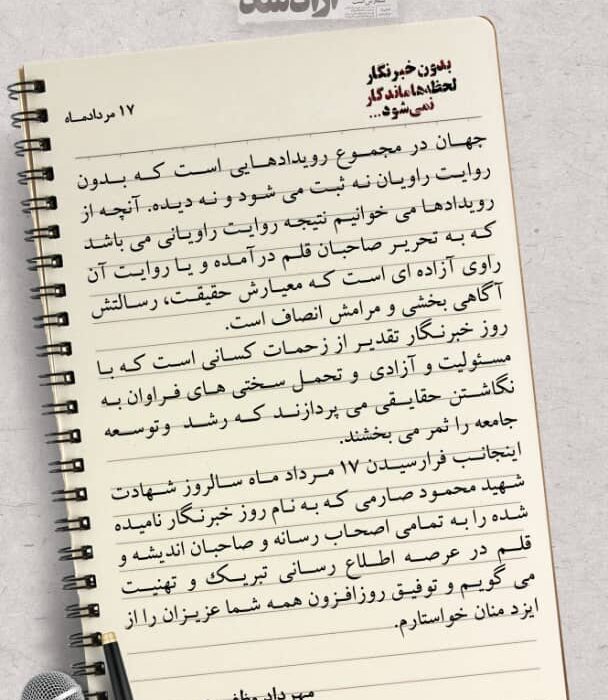 بدون خبرنگار
لحظه‌ها ماندگار
نمی‌شود...
۱۷ مردادماه
جهان در مجموع رویدادهایی است که بدون
روایت راویان نه ثبت می شود و نه دیده. آنچه از
رویدادها می خوانیم نتیجه روایت راویانی می باشد
که به تحریر صاحبان قلم درآمده و یا روایت آن
راوی آزاده ای است که معیارش حقیقت، رسالتش
آگاهی بخشی و مرامش انصاف است.
روز خبرنگار تقدیر از زحمات کسانی است که با
مسئولیت و آزادی و تحمل سختی های فراوان به
نگاشتن حقایقی می پردازند که رشد وتوسعه
جامعه را ثمر می بخشند.
اینجانب فرارسیدن ۱۷ مرداد ماه سالروز شهادت
شهید محمود صارمی که به نام روز خبرنگار نامیده
شده را به تمامی اصحاب رسانه و صاحبان اندیشه و
قلم در عرصه اطلاع رسانی تبریک و تهنیت
می گویم و توفیق روزافزون همه شما عزیزان را از
ایزد منان خواستارم.
مهرداد